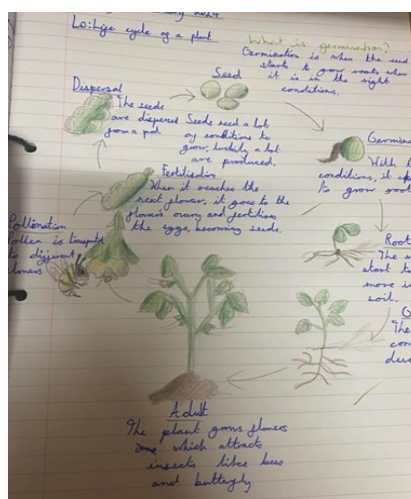 2024
Lo: Life cycle of a plant
What is germination?
Germination is when the seed
starts to grow roots when
it is in the right
conditions.
Seed
Seeds need a lot
of conditions to
grow, luckily a lot
are produced.
Dispersal
The seeds
are dispersed
from a pod
Germin
With
conditions, it
to grow root
Fertilisation
When it reaches the
next flower, it goes to the
flowers ovary and fertilises
the eggs, becoming seeds.
Pollination
Pollen is
to different
flowers
Root
The
start to
move i
soil.
G
The
con
Adult
The plant grows flowers
which attracts
insects like bees
and butterfly